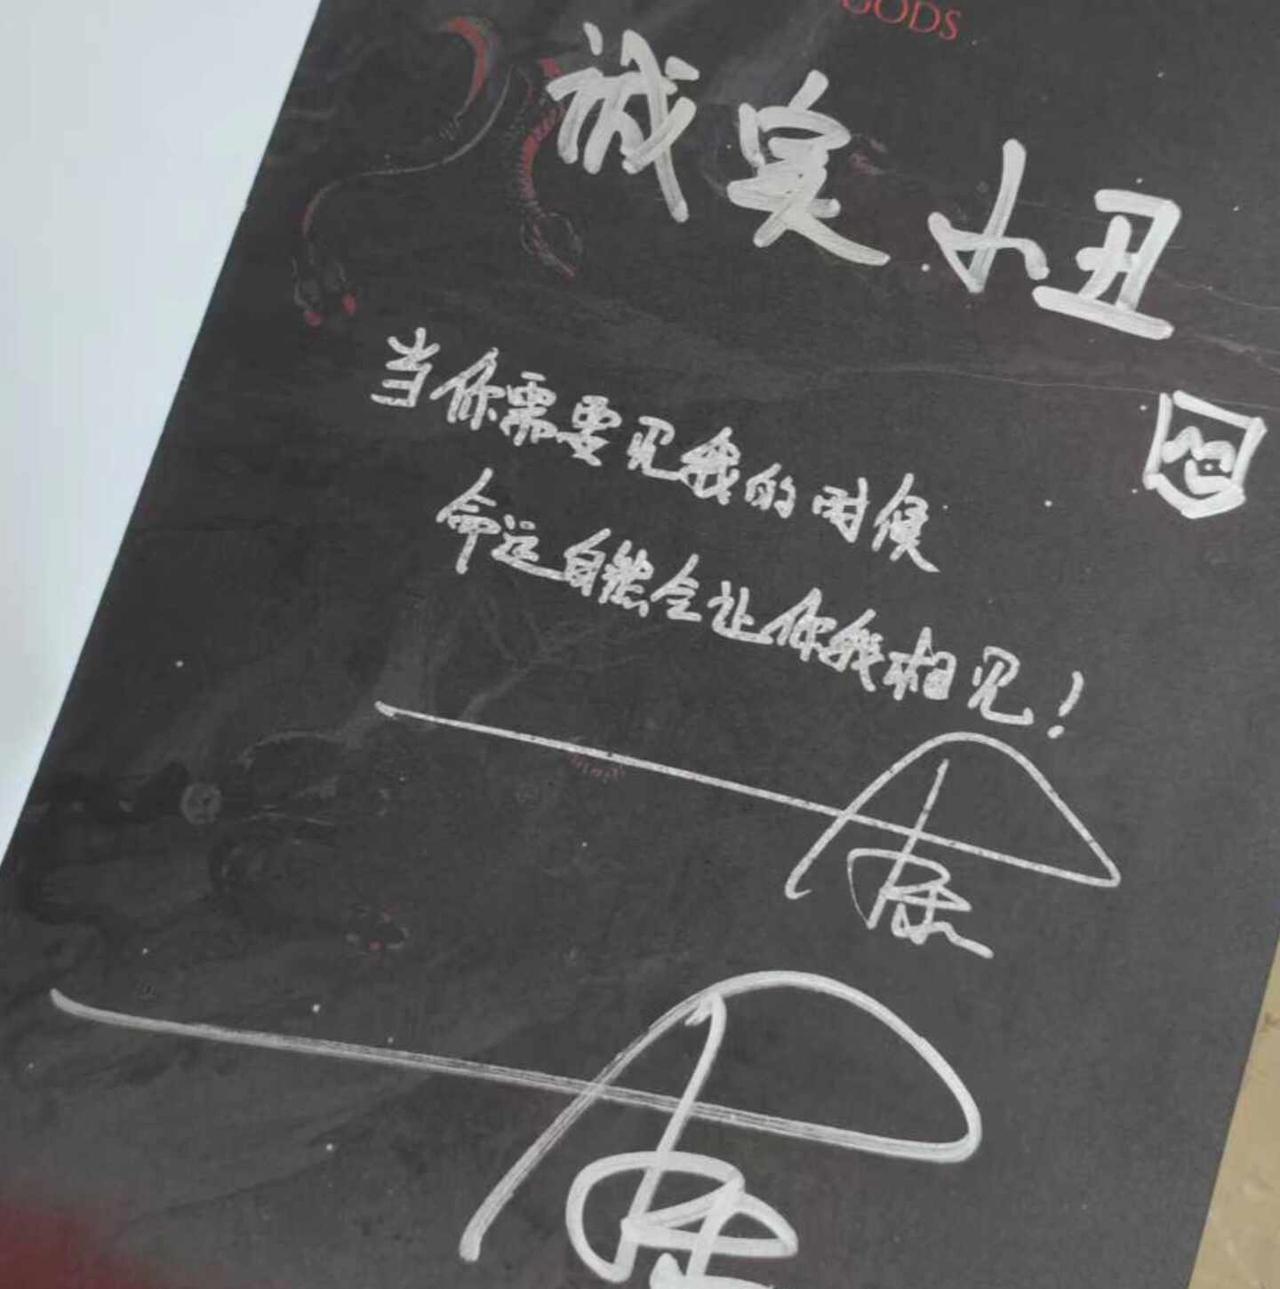 GODS
诚实小丑
当你需要见我的时候
命运自然会让你我相见！